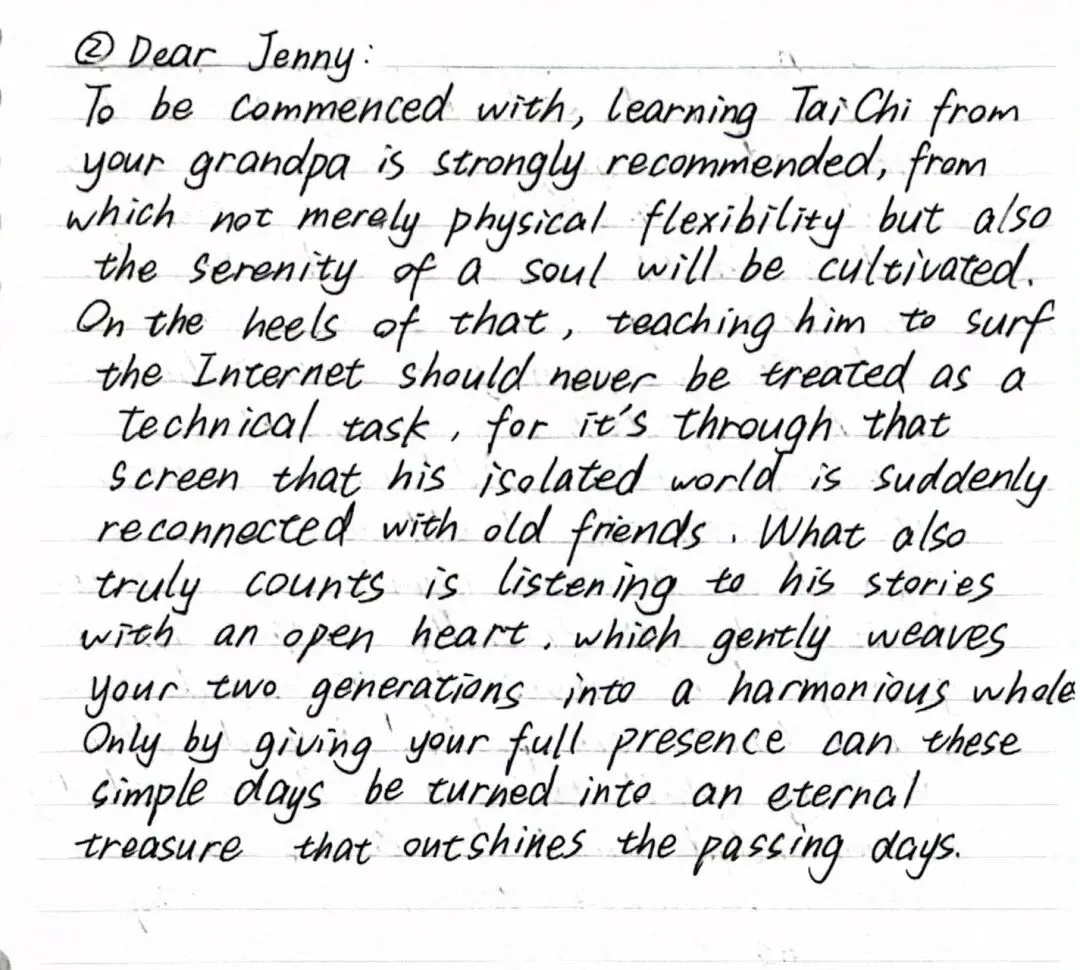 ② Dear Jenny:
To be commenced with, learning Tai Chi from
your grandpa is strongly recommended, from
which not merely physical flexibility but also
the serenity of a soul will be cultivated.
On the heels of that, teaching him to surf
the Internet should never be treated as a
technical task, for it's through that
screen that his isolated world is suddenly
reconnected with old friends. What also
truly counts is listening to his stories
with an open heart, which gently weaves
your two generations into a harmonious whole
Only by giving your full presence can these
simple days be turned into an eternal
treasure that outshines the passing days.